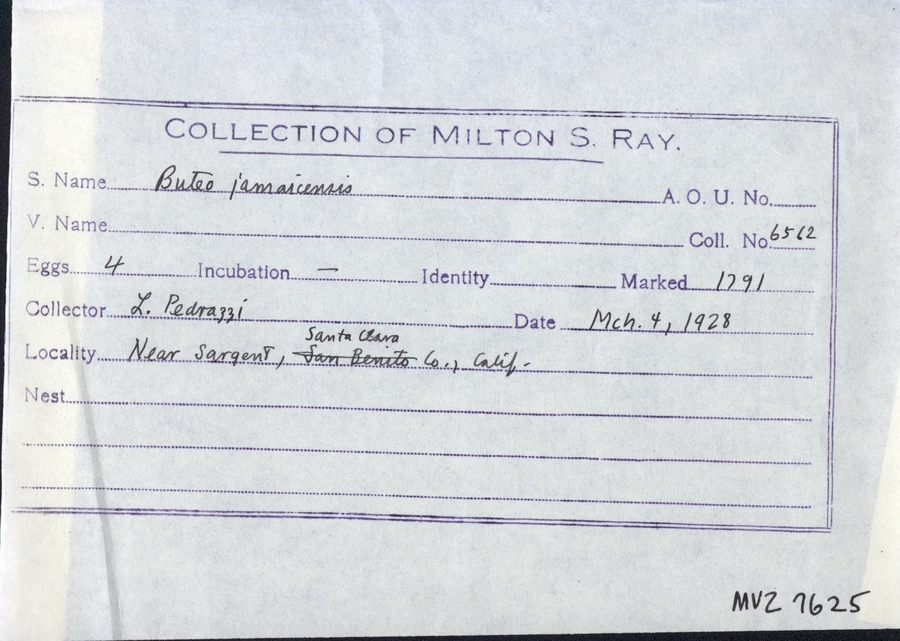 COLLECTION OF MILTON S. RAY.
S. Name Buteo jamaicensis A. O. U. No.
V. Name Coll. No 6562
Eggs 4 Incubation — Identity Marked 1791
Collector L. Pedrazzi Date Mch. 4, 1928
Santa Clara
Locality Near Sargent, San Benito Co., Calif.
Nest
MVZ 7625